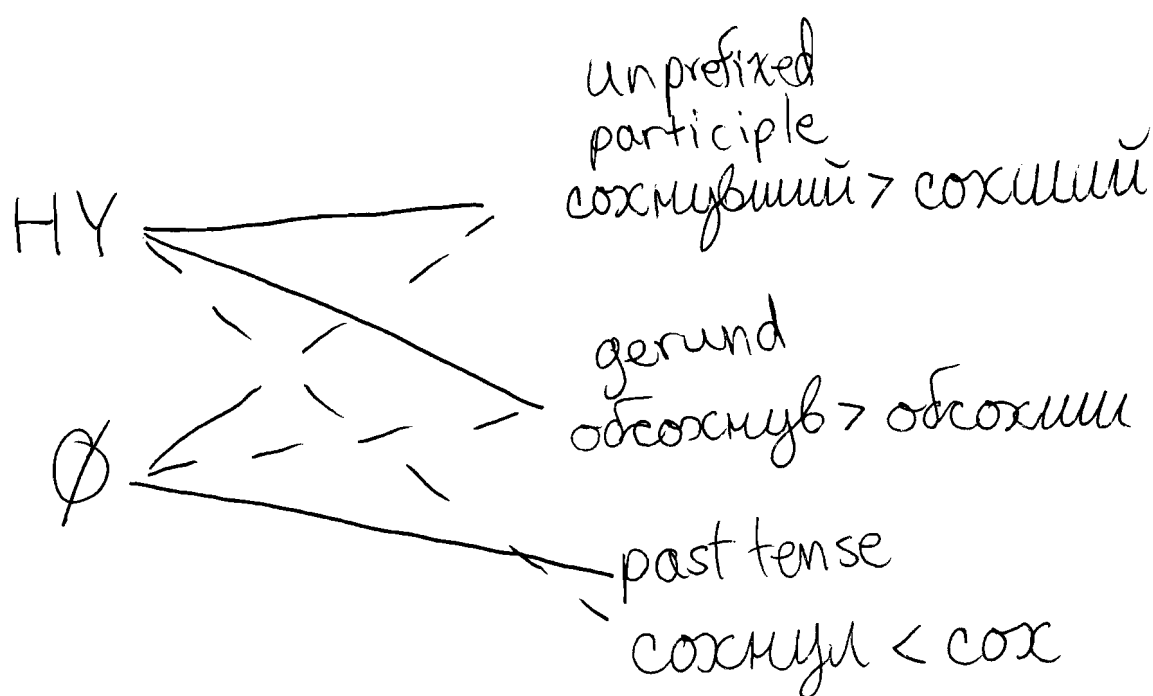 unprefixed
participle
сохнувший > сохший
НУ
gerund
обсохнув > обсохши
Ø
past tense
сохнул < сох